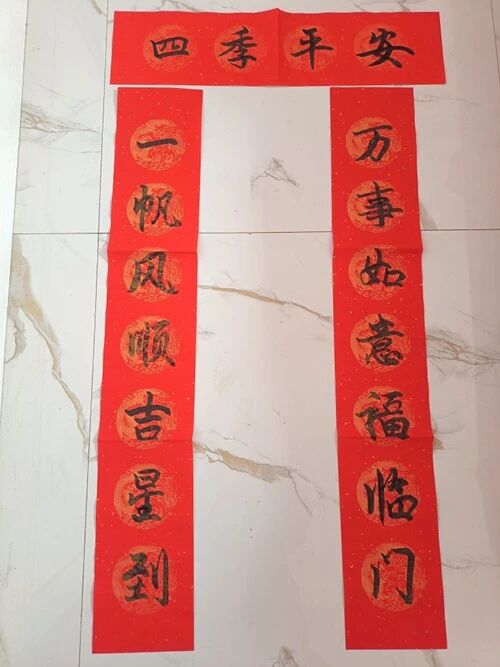 四季平安
一帆风顺吉星到
万事如意福临门